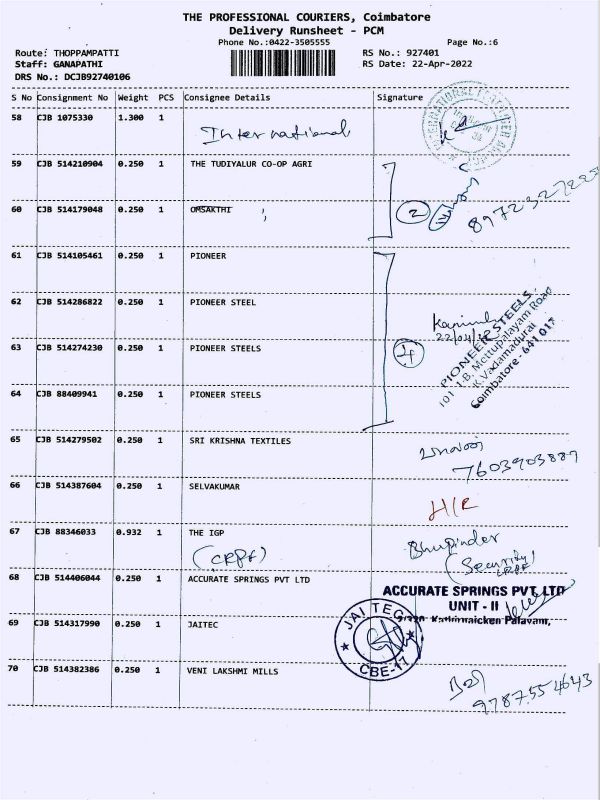 THE PROFESSIONAL COURIERS, Coimbatore
Delivery Runsheet - PCM
Phone No.:0422-3505555 Page No.:6
Route: THOPPAMPATTI RS No.: 927401
Staff: GANAPATHI RS Date: 22-Apr-2022
DRS No.: DCJB92740106
S No Consignment No Weight PCS Consignee Details Signature
58 CJB 1075330 1.300 1
International
59 CJB 514210904 0.250 1 THE TUDIYALUR CO-OP AGRI
60 CJB 514179048 0.250 1 OMSAKTHI 2
61 CJB 514105461 0.250 1 PIONEER
62 CJB 514286822 0.250 1 PIONEER STEEL
22/04/22
PIONEER STEELS
101 1-B, Mettupalayam Road
K.Vadamadurai
Coimbatore - 641 017
63 CJB 514274230 0.250 1 PIONEER STEELS 4
64 CJB 88409941 0.250 1 PIONEER STEELS
65 CJB 514279502 0.250 1 SRI KRISHNA TEXTILES
7603903889
66 CJB 514387604 0.250 1 SELVAKUMAR
67 CJB 88346033 0.932 1 THE IGP Bhupinder
(CRPF) (Security CRPF)
68 CJB 514406044 0.250 1 ACCURATE SPRINGS PVT LTD
ACCURATE SPRINGS PVT. LTD
UNIT - II
Kathirnaicken Palayam,
69 CJB 514317990 0.250 1 JAITEC
JAI TEC
CBE-17
70 CJB 514382386 0.250 1 VENI LAKSHMI MILLS
9787554643